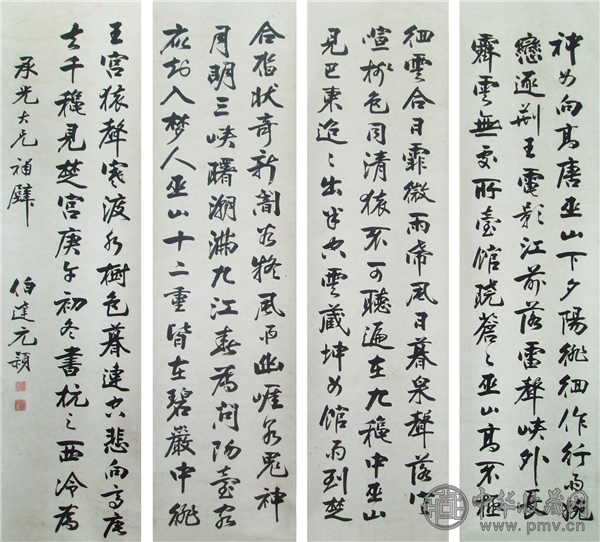 神女向高唐巫山下夕陽徘徊作行雨婉
戀逐荊王電影江前落雷聲峽外長
霽雲無處所臺館曉蒼〻巫山高不極
徊雲合日霏微雨帶風日暮泉聲落寒
暄樹色同清猿不可聽遍在九穐中巫山
見巴東迢〻出半空雲藏神女館雨到楚
合沓狀奇新闇谷疑風雨幽崖若鬼神
月明三峽曙潮滿九江春為問陽臺客
應知入夢人巫山十二重皆在碧巖中徘
王宮猿聲寒渡水樹色暮連空悲向高唐
去千穐見楚宮庚午初冬書杭之西泠為
承光大兄補壁
伯達元穎
中华收藏网
www.pmv.cn